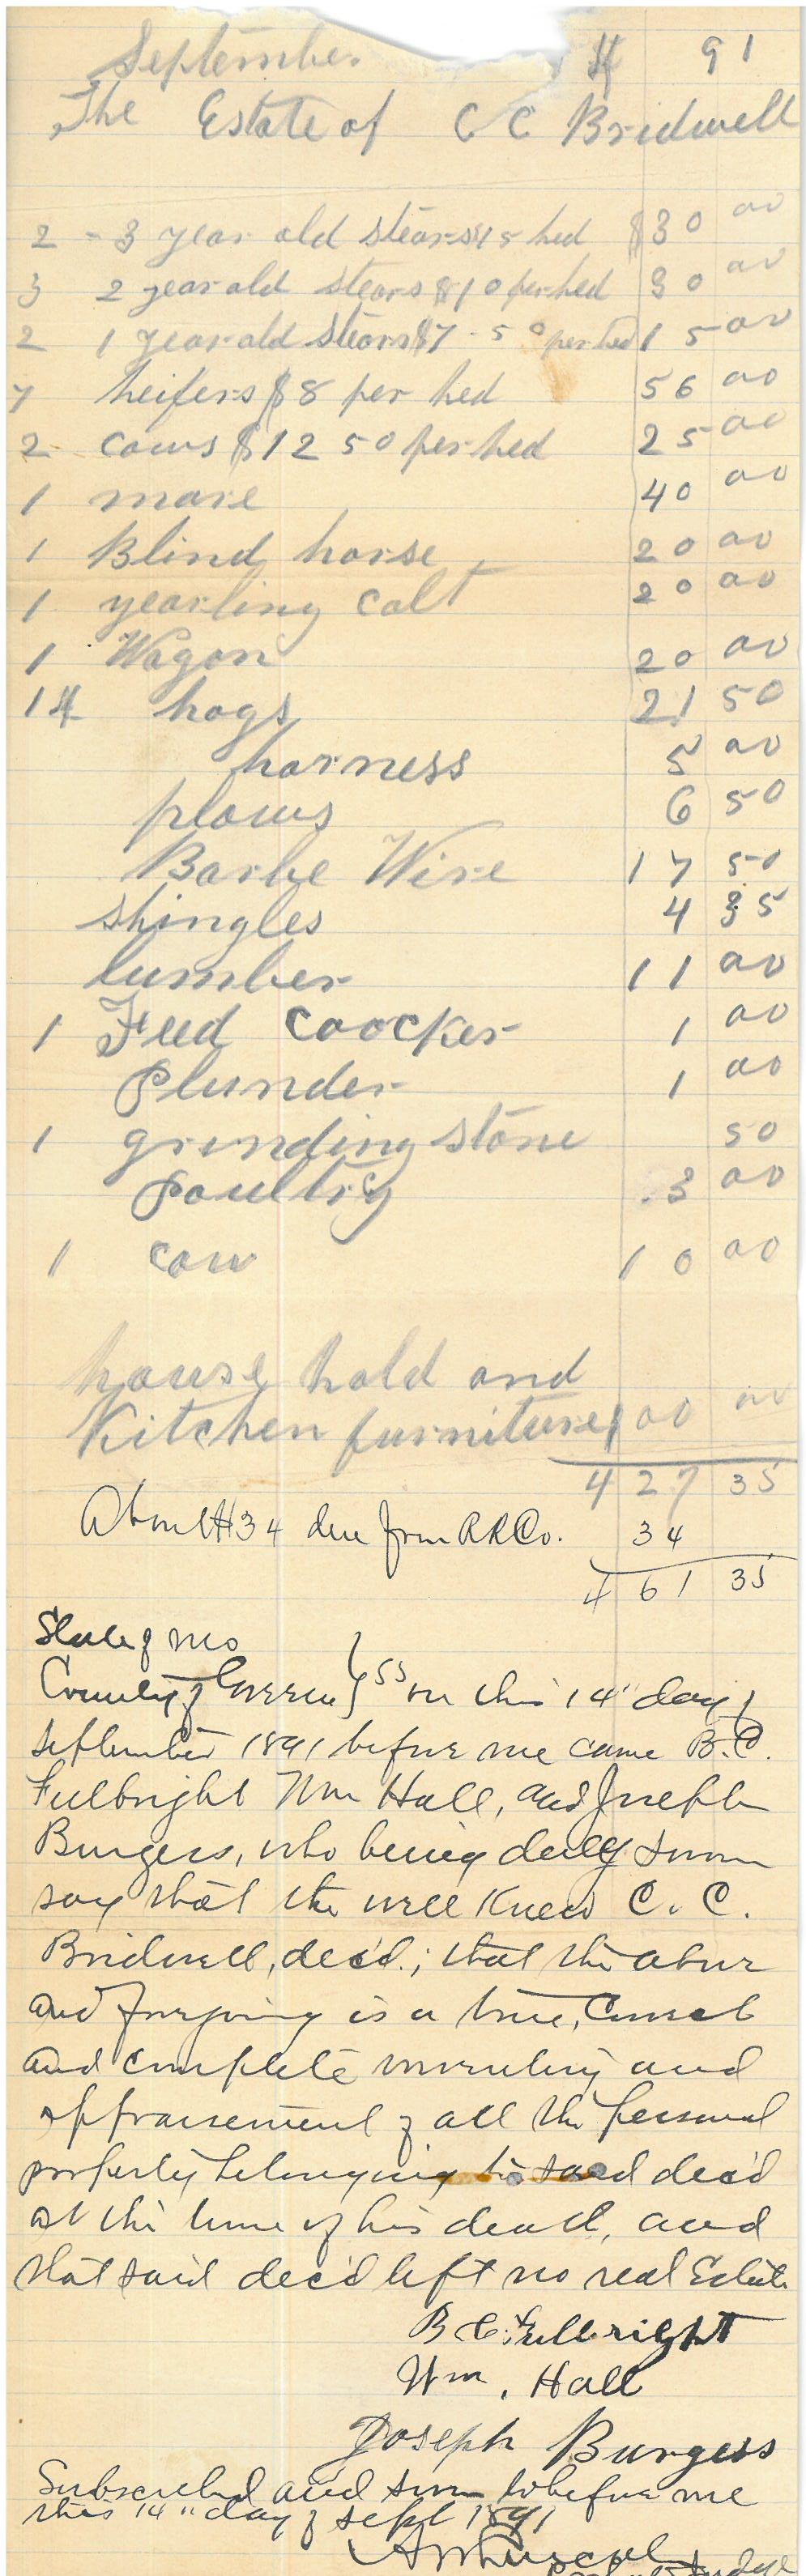 September 4 91
The Estate of C C Bridwell
2 - 3 year old stears $15 hed $30 00
3 2 year old stears $10 per hed 30 00
2 1 year old stears $7 50 per hed 15 00
7 heifers $8 per hed 56 00
2 cows $12 50 per hed 25 00
1 mare 40 00
1 Blind horse 20 00
1 yearling colt 20 00
1 Wagon 20 00
14 hogs 21 50
harness 5 00
plows 6 50
Barbe Wire 17 50
shingles 4 35
lumber 11 00
1 Feed Coocker 1 00
Plunder 1 00
1 grinding stone 50
Poultry 3 00
1 cow 10 00
house hold and
Kitchen furniture 100 00
427 35
About $34 due from RR Co. 34
461 35
State of Mo
County of Greene } ss on this 14" day of
September 1891 before me came B.C.
Fulbright Wm Hall, and Joseph
Burgess, who being duly sworn
say that the well knew C. C.
Bridwell, dec'd.; that the above
and foregoing is a true, correct
and complete inventory and
appraisement of all the personal
property belonging to said dec'd
at the time of his death, and
that said dec'd left no real Estate
B C. Fullbright
Wm. Hall
Joseph Burgess
Subscribed and sworn to before me
this 14" day of Sept 1891
Judge